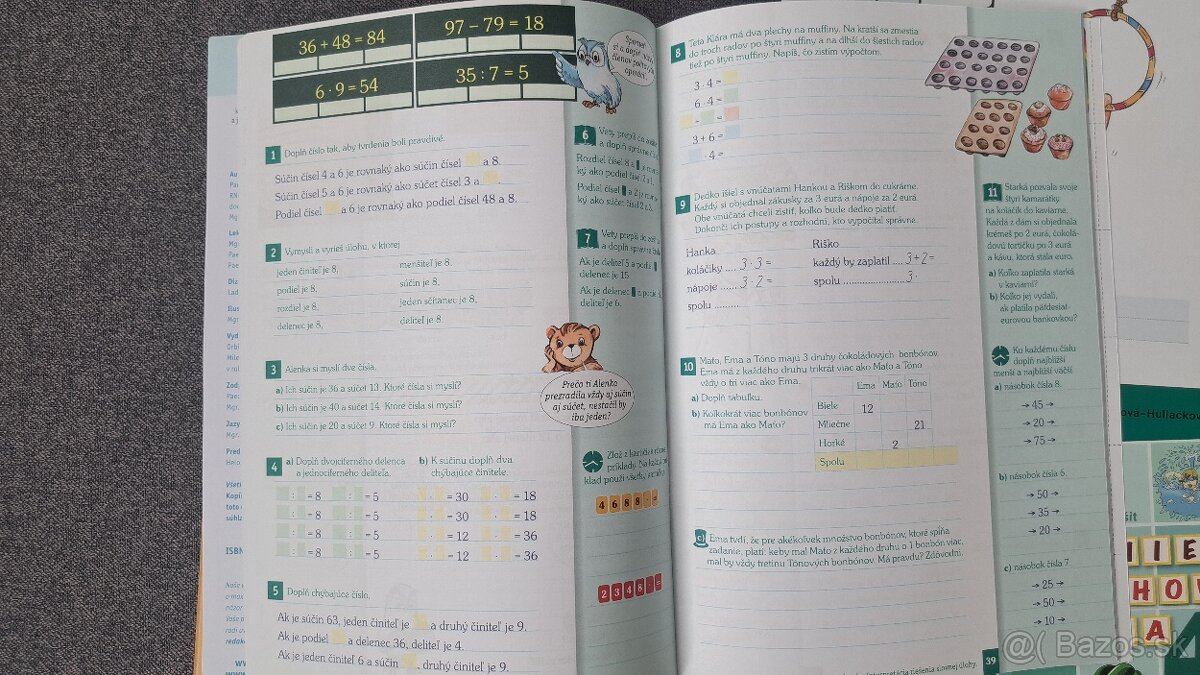 36 + 48 = 84
97 – 79 = 18
6 · 9 = 54
35 : 7 = 5
1 Doplň číslo tak, aby tvrdenia boli pravdivé.
Súčin čísel 4 a 6 je rovnaký ako súčin čísel a 8.
Súčin čísel 5 a 6 je rovnaký ako súčet čísel 3 a .
Podiel čísel a 6 je rovnaký ako podiel čísel 48 a 8.
2 Vymysli a vyrieš úlohu, v ktorej
jeden činiteľ je 8,
menšiteľ je 8.
podiel je 8,
súčin je 8.
rozdiel je 8,
jeden sčítanec je 8,
delenec je 8,
deliteľ je 8.
3 Alenka si myslí dve čísla.
a) Ich súčin je 36 a súčet 13. Ktoré čísla si myslí?
b) Ich súčin je 40 a súčet 14. Ktoré čísla si myslí?
c) Ich súčin je 20 a súčet 9. Ktoré čísla si myslí?
Prečo ti Alenka
prezradila vždy aj súčin
aj súčet, nestačil by
iba jeden?
4 a) Doplň dvojciferného delenca
a jednociferného deliteľa.
b) K súčinu doplň dva
chýbajúce činitele.
: = 8 : = 5 · = 30 · = 18
: = 8 : = 5 · = 30 · = 18
: = 8 : = 5 · = 12 · = 36
: = 8 : = 5 · = 12 · = 36
5 Doplň chýbajúce číslo.
Ak je súčin 63, jeden činiteľ je a druhý činiteľ je 9.
Ak je podiel a delenec 36, deliteľ je 4.
Ak je jeden činiteľ 6 a súčin , druhý činiteľ je 9.
6 Vety prepíš do
a doplň správne
Rozdiel čísel 8 a
ký ako podiel čísel
Podiel čísel a 2 je
ký ako súčet čísel 2 a 3.
7 Vety prepíš do
a doplň
Ak je deliteľ 5 a
delenec je 15.
Ak je delenec a
deliteľ je 6.
Zlož z
príklady. Na
klad použi všetky
4 6 8 8 · =
2 3 4 8 · =
8 Teta Klára má dva plechy na muffiny. Na kratší sa zmestia
do troch radov po štyri muffiny a na dlhší do šiestich radov
tiež po štyri muffiny. Napíš, čo zistím výpočtom.
3 · 4 =
6 · 4 =
+ =
3 + 6 =
· 4 =
9 Dedko išiel s vnúčatami Hankou a Riškom do cukrárne.
Každý si objednal zákusky za 3 eurá a nápoje za 2 eurá.
Obe vnúčatá chceli zistiť, koľko bude dedko platiť.
Dokonči ich postupy a rozhodni, kto vypočítal správne.
Hanka
Riško
koláčiky .... 3 · 3 =
každý by zaplatil .... 3 + 2 =
nápoje ...... 3 · 2 =
spolu ...................... 3 ·
spolu ..........
10 Maťo, Ema a Tóno majú 3 druhy čokoládových bonbónov.
Ema má z každého druhu trikrát viac ako Maťo a Tóno
vždy o tri viac ako Ema.
a) Doplň tabuľku.
b) Koľkokrát viac bonbónov
má Ema ako Maťo?
Ema Maťo Tóno
Biele 12
Mliečne 21
Horké 2
Spolu
c) Ema tvrdí, že pre akékoľvek množstvo bonbónov, ktoré spĺňa
zadanie, platí: keby mal Maťo z každého druhu o 1 bonbón viac,
mal by vždy tretinu Tónových bonbónov. Má pravdu? Zdôvodni.
11 Starká pozvala svoje
štyri kamarátky
na koláčik do kaviarne.
Každá z dám si objednala
krémeš po 2 eurá, čokolá-
dovú tortičku po 3 eurá
a kávu, ktorá stála euro.
a) Koľko zaplatila starká
v kaviarni?
b) Koľko jej vydali,
ak platila päťdesiat-
eurovou bankovkou?
Ku každému číslu
doplň najbližší
menší a najbližší väčší
a) násobok čísla 8.
→ 45 →
→ 20 →
→ 75 →
b) násobok čísla 6.
→ 50 →
→ 35 →
→ 20 →
c) násobok čísla 7.
→ 25 →
→ 50 →
→ 10 →
39
ISBN
ová-Huliačková
Bazos.sk